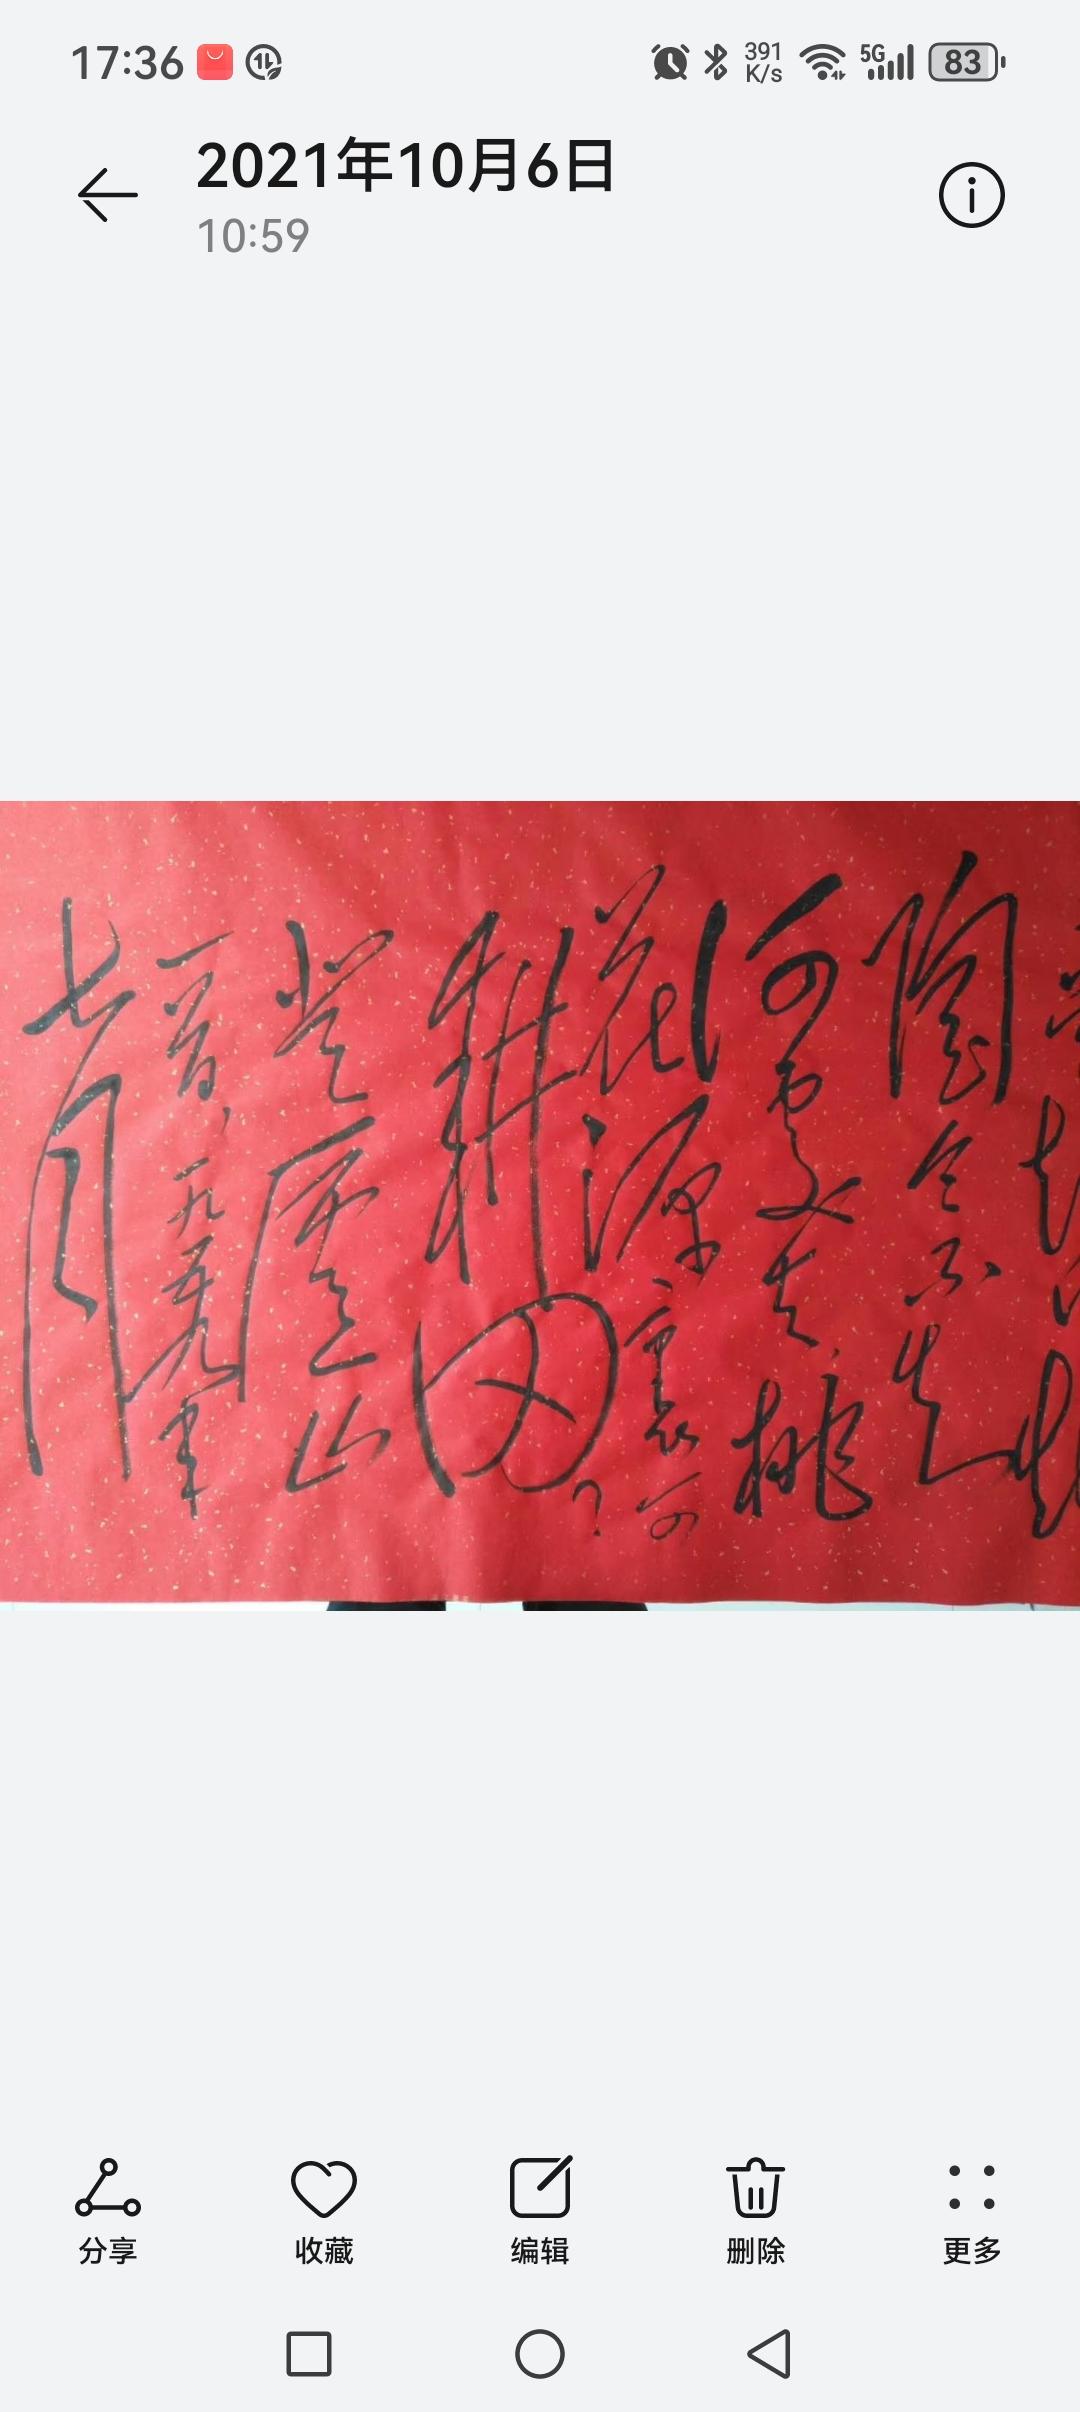 17:36
391 K/s
5G
83
2021年10月6日
10:59
陶令不知
何處去,桃
花源裏可
耕田?
登廬山
一首,一九五九年
七月
分享
收藏
编辑
删除
更多